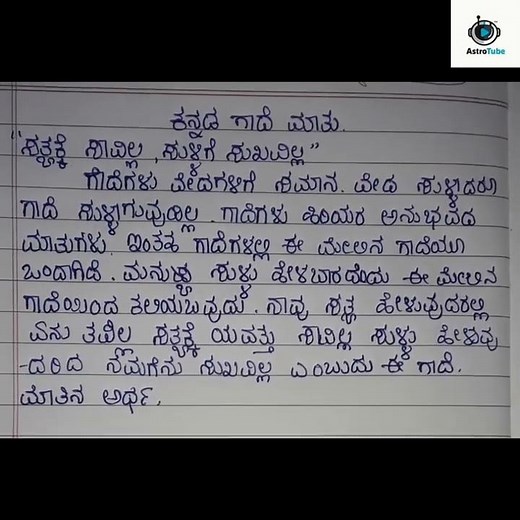 AstroTube
ಕನ್ನಡ ಗಾದೆ ಮಾತು.
"ಸತ್ಯಕ್ಕೆ ಸಾವಿಲ್ಲ, ಸುಳ್ಳಿಗೆ ಸುಖವಿಲ್ಲ"
ಗಾದೆಗಳು ವೇದಗಳಿಗೆ ಸಮಾನ. ವೇದ ಸುಳ್ಳಾದರೂ
ಗಾದೆ ಸುಳ್ಳಾಗುವುದಿಲ್ಲ. ಗಾದೆಗಳು ಹಿರಿಯರ ಅನುಭವದ
ಮಾತುಗಳು. ಇಂತಹ ಗಾದೆಗಳಲ್ಲಿ ಈ ಮೇಲಿನ ಗಾದೆಯೂ
ಒಂದಾಗಿದೆ. ಮನುಷ್ಯ ಸುಳ್ಳು ಹೇಳಬಾರದೆಂದು ಈ ಮೇಲಿನ
ಗಾದೆಯಿಂದ ತಿಳಿಯಬಹುದು. ನಾವು ಸತ್ಯ ಹೇಳುವುದರಲ್ಲಿ
ಏನು ತಪ್ಪಿಲ್ಲ ಸತ್ಯಕ್ಕೆ ಯವತ್ತು ಸಾವಿಲ್ಲ ಸುಳ್ಳು ಹೇಳುವು
-ದರಿಂದ ನಮಗೇನು ಸುಖವಿಲ್ಲ ಎಂಬುದು ಈ ಗಾದೆ.
ಮಾತಿನ ಅರ್ಥ.